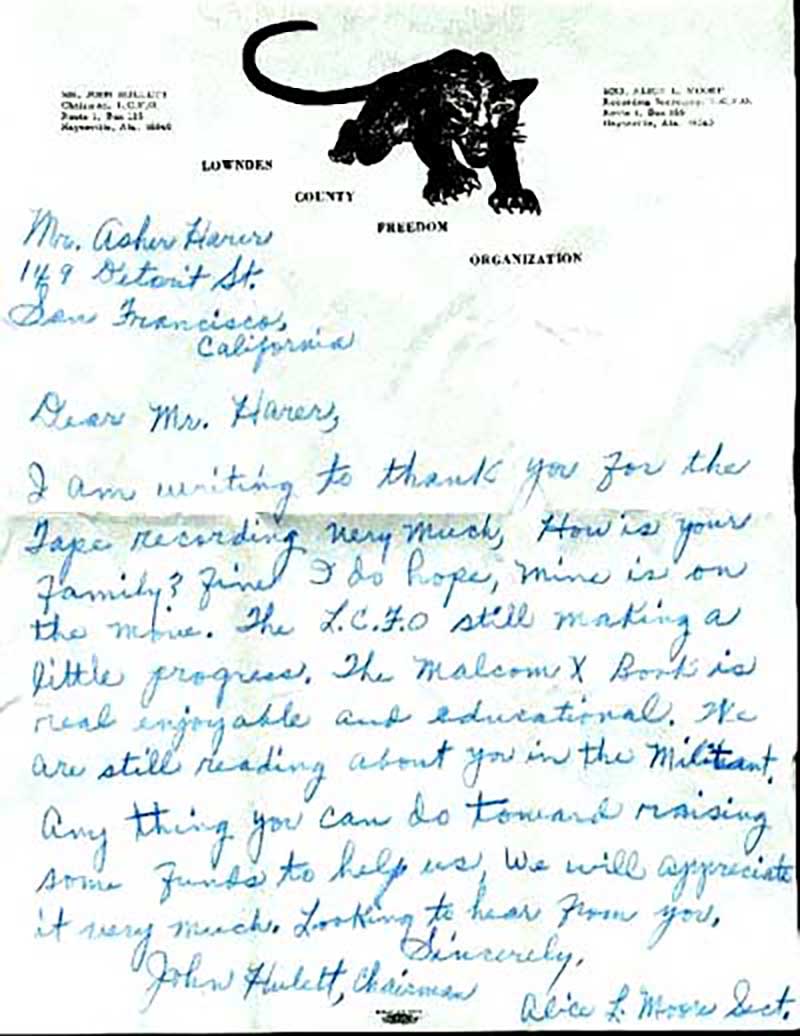 MR. JOHN HULLETT
Chairman, L.C.F.O.
Route 1, Box
Haynesville, Ala.
MRS. ALICE L. MOORE
Recording Secretary, L.C.F.O.
Route 1, Box
Haynesville, Ala.
LOWNDES
COUNTY
FREEDOM
ORGANIZATION
Mr. Asher Harer
149 Detroit St.
San Francisco,
California
Dear Mr. Harer,
I am writing to thank you for the
Tape recording very much, How is your
Family? Fine I do hope, mine is on
the move. The L.C.F.O still making a
little progress. The Malcom X Book is
real enjoyable and educational. We
are still reading about you in the Militant.
Any thing you can do toward raising
some funds to help us, We will appreciate
it very much. Looking to hear from you.
Sincerely,
John Hulett, Chairman
Alice L. Moore Sect.